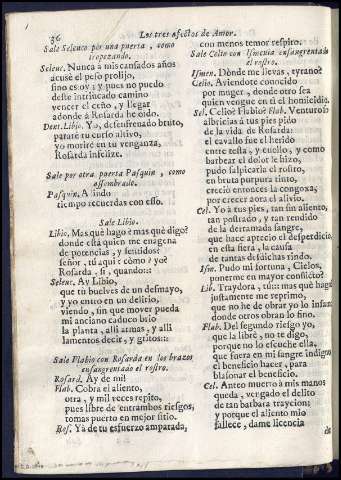 36
Los tres afectos de Amor.
Sale Seleuco por una puerta, como
tropezando.
Seleuc. Nunca à mis cansados años
acusè el peso prolijo,
sino es oy; y pues no puedo
deste intrincado camino
vencer el ceño, y llegar
adonde à Rosarda he oido.
Dent. Libio. Yo, desenfrenado bruto,
pararè tu curso altivo,
yo morirè en tu venganza,
Rosarda infelize.
Sale por otra puerta Pasquin, como
assombrado.
Pasquin. A lindo
tiempo recuerdas con esso.
Sale Libio.
Libio. Mas què hago? mas què digo?
donde està quien me enagena
de potencias, y sentidos?
señor, tù aqui? como? yo?
Rosarda, si, quando:::
Seleuc. Ay Libio,
que tù buelves de un desmayo,
y yo entro en un delirio,
viendo, sin que mover pueda
mi anciano caduco brio
la planta, alli armas, y alli
lamentos decir, y gritos:::
Sale Flabio con Rosarda en los brazos
ensangrentado el rostro.
Rosard. Ay de mi!
Flab. Cobra el aliento,
otra, y mil veces repito,
pues libre de entrambos riesgos,
tomas puerto en mejor sitio.
Ros. Ya de tu esfuerzo amparada,
con menos temor respiro.
Sale Celio con Ismenia ensangrentado
el rostro.
Ismen. Dònde me llevas, tyrano?
Celio. Aviendote conocido
por muger, donde otro sea
quien vengue en ti el homicidio.
Sel. Celio? Flabio? Flab. Venturoso
albricias à tus pies pido
de la vida de Rosarda:
el cavallo fue el herido
entre testa, y cuello, y como
barbear el dolor le hizo,
pudo salpicarla el rostro,
en bruta purpura tinto,
creciò entonces la congoxa;
por crecer aora el alivio.
Cel. Yo à tus pies, tan sin aliento,
tan postrado, y tan rendido
de la derramada sangre,
que hace aprecio el desperdicio,
en esta fiera, la causa
de tantas desdichas rindo.
Ism. Pudo mi fortuna, Cielos,
ponerme en mayor conflicto?
Lib. Traydora, tù::: mas què hago?
justamente me reprimo,
que no he de obrar yo lo infame
donde otros obran lo fino.
Flab. Del segundo riesgo yo,
que la librè, no te digo,
porque no lo escuche ella,
que fuera en mi sangre indigno
el beneficio hacer, para
blasonar el beneficio.
Cel. Anteo muerto à mis manos
queda, vengado el delito
de tan barbara traycion;
y porque el aliento mio
fallece, dame licencia
de